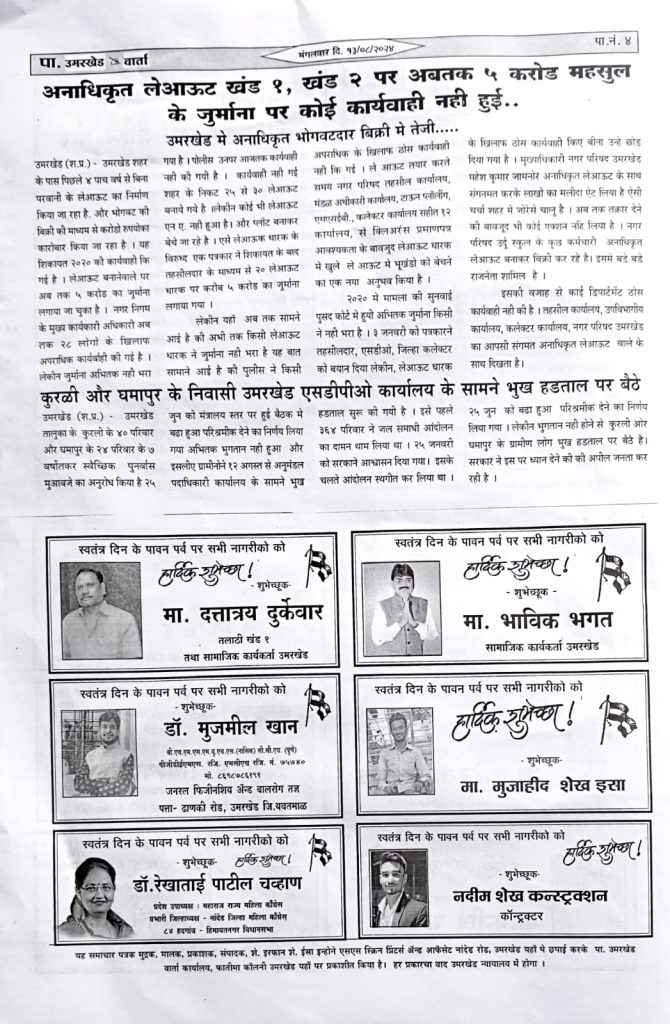 पा. उमरखेड वार्ता
मंगलवार दि. १३/०८/२०२४
पा.नं. ४
अनाधिकृत लेआऊट खंड १, खंड २ पर अबतक ५ करोड महसुल
के जुर्माना पर कोई कार्यवाही नही हुई..
उमरखेड मे अनाधिकृत भोगवटदार बिक्री मे तेजी.....
उमरखेड (श.प्र.) - उमरखेड शहर
के पास पिछले ४ पाच वर्ष से बिना
परवानी के लेआऊट का निर्माण
किया जा रहा है. और भोगवट की
बिक्री की माध्यम से करोडो रुपयोका
कारोबार किया जा रहा है । यह
शिकायत २०२० की कार्यवाही कि
गई है । लेआऊट बनानेवाले पर
अब तक ५ करोड का जुर्माना
लगाया जा चुका है । नगर निगम
के मुख्य कार्यकारी अधिकारी अब
तक २८ लोगों के खिलाफ
अपराधिक कार्यवाही की गई है ।
लेकीन जुर्माना अभितक नही भरा
गया है । पोलीस उनपर आजतक कार्यवाही
नही की गयी है । कार्यवाही नही गई
शहर के निकट २५ से ३० लेआऊट
बनाये गये है ।लेकीन कोई भी लेआऊट
एन ए. नही हुआ है। और प्लॉट बनाकर
बेचे जा रहे है । एसे लेआऊक धारक के
विरुध्द एक पत्रकार ने शिकायत के बाद
तहसीलदार के माध्यम से २० लेआऊट
धारक पर करीब ५ करोड का जुर्माना
लगाया गया ।
लेकीन यहाँ अब तक सामने
आई है की अभी तक किसी लेआऊट
धारक ने जुर्माना नही भरा है यह बात
सामाने आई है की पुलीस ने किसी
अपराधिक के खिलाफ ठोस कार्यवाही
नही कि गई । ले आऊट तयार करते
समय नगर परिषद तहसील कार्यालय,
मंडळ अधीकारी कार्यालय, टाऊन प्लॉनींग,
एमएसईबी., कलेक्टर कार्यालय सहीत १२
कार्यालय, से क्लिअरंस प्रमाणपत्र
आवश्यकता के बावजुद लेआऊट धारक
में खुले ले आऊट मे भूखंडो को बेचने
का एक नया अनुभव किया है ।
२०२० मे मामला की सुनवाई
पुसद कोर्ट मे हुयी अभितक जुर्माना किसी
ने नही भरा है । ३ जनवरी को पत्रकारने
तहसीलदार, एसडीओ, जिल्हा कलेक्टर
को बयान दिया लेकीन, लेआऊट धारक
के खिलाफ ठोस कार्यवाही किए बीना उन्हे छोड
दिया गया है । मुख्याधिकारी नगर परिषद उमरखेड
महेश कुमार जामनोर अनाधिकृत लेआऊट के साथ
संगनमत करके लाखो का मलीदा ऐंट लिया है ऐसी
चर्चा शहर मे जोरेसे चालु है । अब तक तक्रार देने
की बावजुद भी कोई एक्शन नहि लिया है । नगर
परिषद उर्दु स्कूल के कुछ कर्मचारी अनाधिकृत
लेआऊट बनाकर बिक्री कर रहे है। इसमे बडे बडे
राजनेता शामिल है ।
इसकी वजाह से काई डिपार्टमेंट ठोस
कार्यवाही नही की है । तहसील कार्यालय, उपविभागीय
कार्यालय, कलेक्टर कार्यालय, नगर परिषद उमरखेड
का आपसी संगमत अनाधिकृत लेआऊट वाले के
साथ दिखता है।
कुरळी और घमापुर के निवासी उमरखेड एसडीपीओ कार्यालय के सामने भुख हडताल पर बैठे
उमरखेड (श.प्र.) - उमरखेड
तालुका के कुरली के ४० परिवार
और घमापुर के २४ परिवार के ७
वर्षातकर स्वैच्छिक पुनर्वास
मुआवजे का अनुरोध किया है २५
जुन को मंत्रालय स्तर पर हुई बैठक मे
बढा हुआ परिश्रमीक देने का निर्णय लिया
गया अभितक भुगतान नही हुआ और
इसलीए ग्रामीनोने १२ अगस्त से अनुमंडल
पदाधिकारी कार्यालय के सामने भुख
हडताल सुरू की गयी है । इसे पहले
३६४ परिवार ने जल समाधी आंदोलन
का दामन थाम लिया था । २५ जनवरी
को सरकाने आश्वासन दिया गया। इसके
चलते आंदोलन स्थगीत कर लिया था ।
२५ जुन को बढा हुआ परिश्रमीक देने का निर्णय
लिया गया । लेकीन भुगतान नही होने से कुरली ओर
घमापुर के ग्रामीण लोग भुख हडताल पर बैठे है।
सरकार ने इस पर ध्यान देने की की अपील जनता कर
रही है ।
स्वतंत्र दिन के पावन पर्व पर सभी नागरीको को
हार्दिक शुभेच्छा!
- शुभेच्छूक-
मा. दत्तात्रय दुर्केवार
तलाठी खंड १
तथा सामाजिक कार्यकर्ता उमरखेड
स्वतंत्र दिन के पावन पर्व पर सभी नागरीको को
हार्दिक शुभेच्छा!
- शुभेच्छूक-
मा. भाविक भगत
सामाजिक कार्यकर्ता उमरखेड
स्वतंत्र दिन के पावन पर्व पर सभी नागरीको को
- शुभेच्छूक-
डॉ. मुजमील खान
बी.एच.एम.एस.एम.यु.एच.एस.(नाशिक) सी.सी.एच. (पुणे)
पीजीडीईएमएस. रजि. एमसीएच रजि. नं. ७५७४०
मो. ८६९८७८६१९१
जनरल फिजीनशिय अॅन्ड बालरोग तज्ञ
पत्ता- ढाणकी रोड, उमरखेड जि.यवतमाळ
स्वतंत्र दिन के पावन पर्व पर सभी नागरीको को
हार्दिक शुभेच्छा!
- शुभेच्छूक-
मा. मुजाहीद शेख इसा
स्वतंत्र दिन के पावन पर्व पर सभी नागरीको को
- शुभेच्छूक- हार्दिक शुभेच्छा!
डॉ.रेखाताई पाटील चव्हाण
प्रदेश उपाध्यक्ष : महाराज राज्य महिला काँग्रेस
प्रभारी जिल्हाध्यक्ष - नांदेड जिल्हा महिला काँग्रेस
८४ हदगांव - हिमायतनगर विधानसभा
स्वतंत्र दिन के पावन पर्व पर सभी नागरीको को
हार्दिक शुभेच्छा!
- शुभेच्छूक-
नदीम शेख कन्स्ट्रक्शन
कॉन्ट्रक्टर
यह समाचार पत्रक मुद्रक, मालक, प्रकाशक, संपादक, शे. इरफान शे. ईसा इन्होने एसएस स्क्रिन प्रिंटर्स अॅन्ड आफॅसेट नांदेड रोड, उमरखेड यहाँ पे छपाई करके पा. उमरखेड
वार्ता कार्यालय, फातीमा कॉलनी उमरखेड यहाँ पर प्रकाशीत किया है। हर प्रकारचा वाद उमरखेड न्यायालय में होगा ।